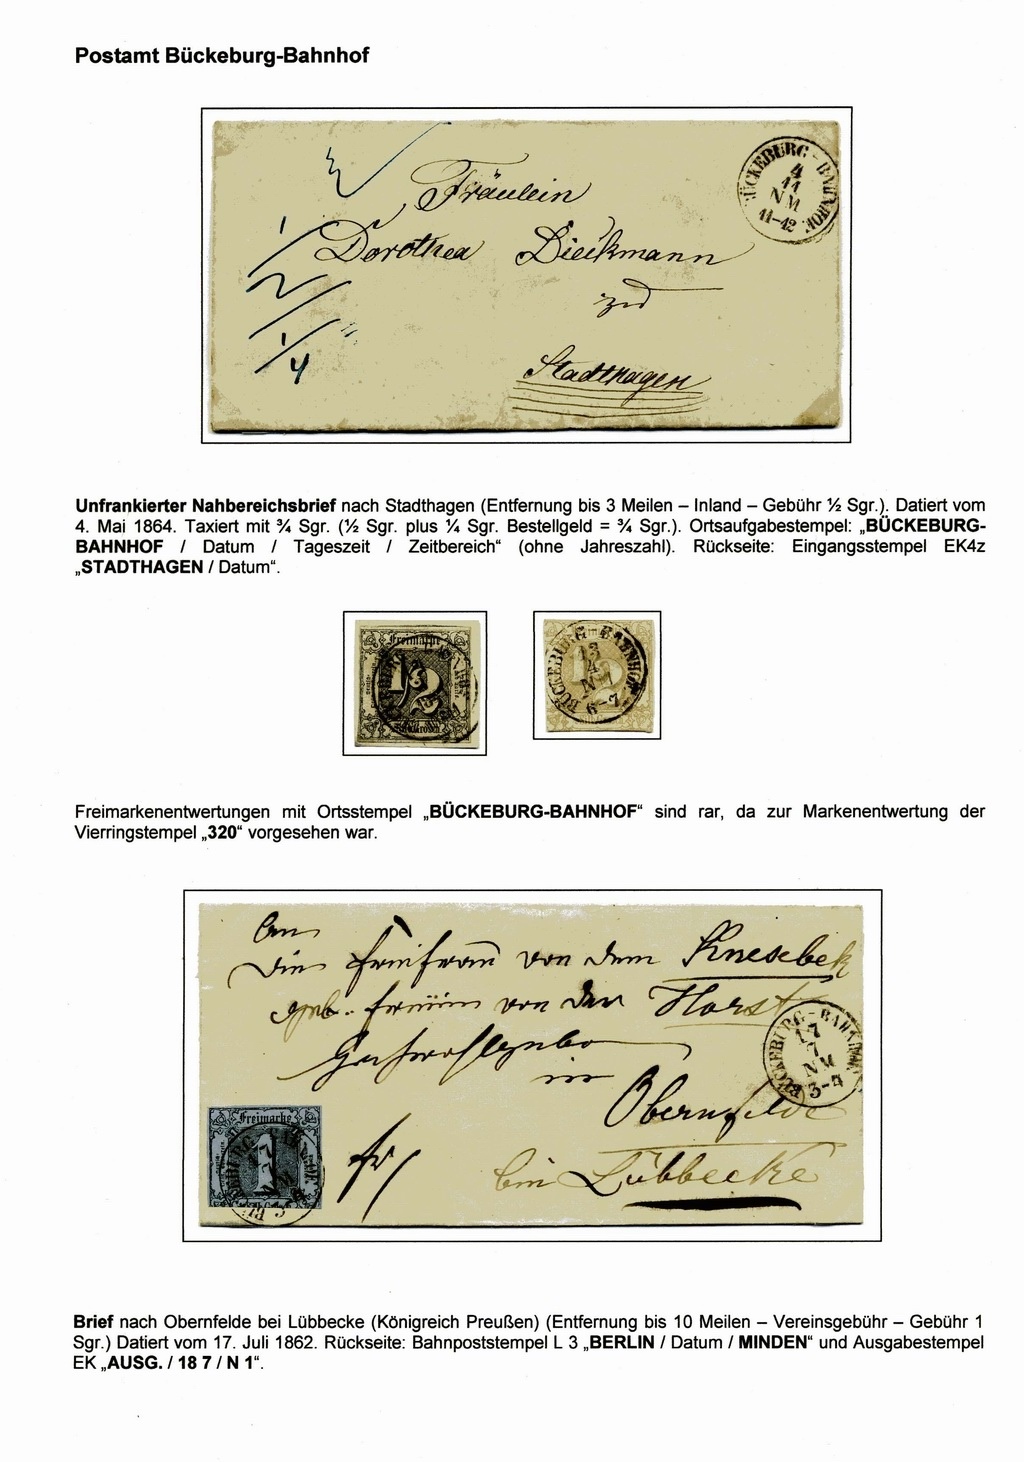 Postamt Bückeburg-Bahnhof
BÜCKEBURG - BAHNHOF
4
11
NM
11-12
Fräulein
Dorothea Dieckmann
zu
Stadthagen
1
2
1
4
Unfrankierter Nahbereichsbrief nach Stadthagen (Entfernung bis 3 Meilen – Inland – Gebühr ½ Sgr.). Datiert vom
4. Mai 1864. Taxiert mit ¾ Sgr. (½ Sgr. plus ¼ Sgr. Bestellgeld = ¾ Sgr.). Ortsaufgabestempel: „BÜCKEBURG-
BAHNHOF / Datum / Tageszeit / Zeitbereich“ (ohne Jahreszahl). Rückseite: Eingangsstempel EK4z
„STADTHAGEN / Datum“.
Freimarke
1/2
BÜCKEBURG-BAHNHOF
13
4
N
6-7
Freimarkenentwertungen mit Ortsstempel „BÜCKEBURG-BAHNHOF“ sind rar, da zur Markenentwertung der
Vierringstempel „320“ vorgesehen war.
An
die Freifrau von dem Knesebek
geb. Freiin von der Horst
Hochwohlgeboren
in
Obernfelde
bei Lübbecke
fr
BÜCKEBURG - BAHNHOF
17
7
NM
3-4
Freimarke
1
Brief nach Obernfelde bei Lübbecke (Königreich Preußen) (Entfernung bis 10 Meilen – Vereinsgebühr – Gebühr 1
Sgr.) Datiert vom 17. Juli 1862. Rückseite: Bahnpoststempel L 3 „BERLIN / Datum / MINDEN“ und Ausgabestempel
EK „AUSG. / 18 7 / N 1“.